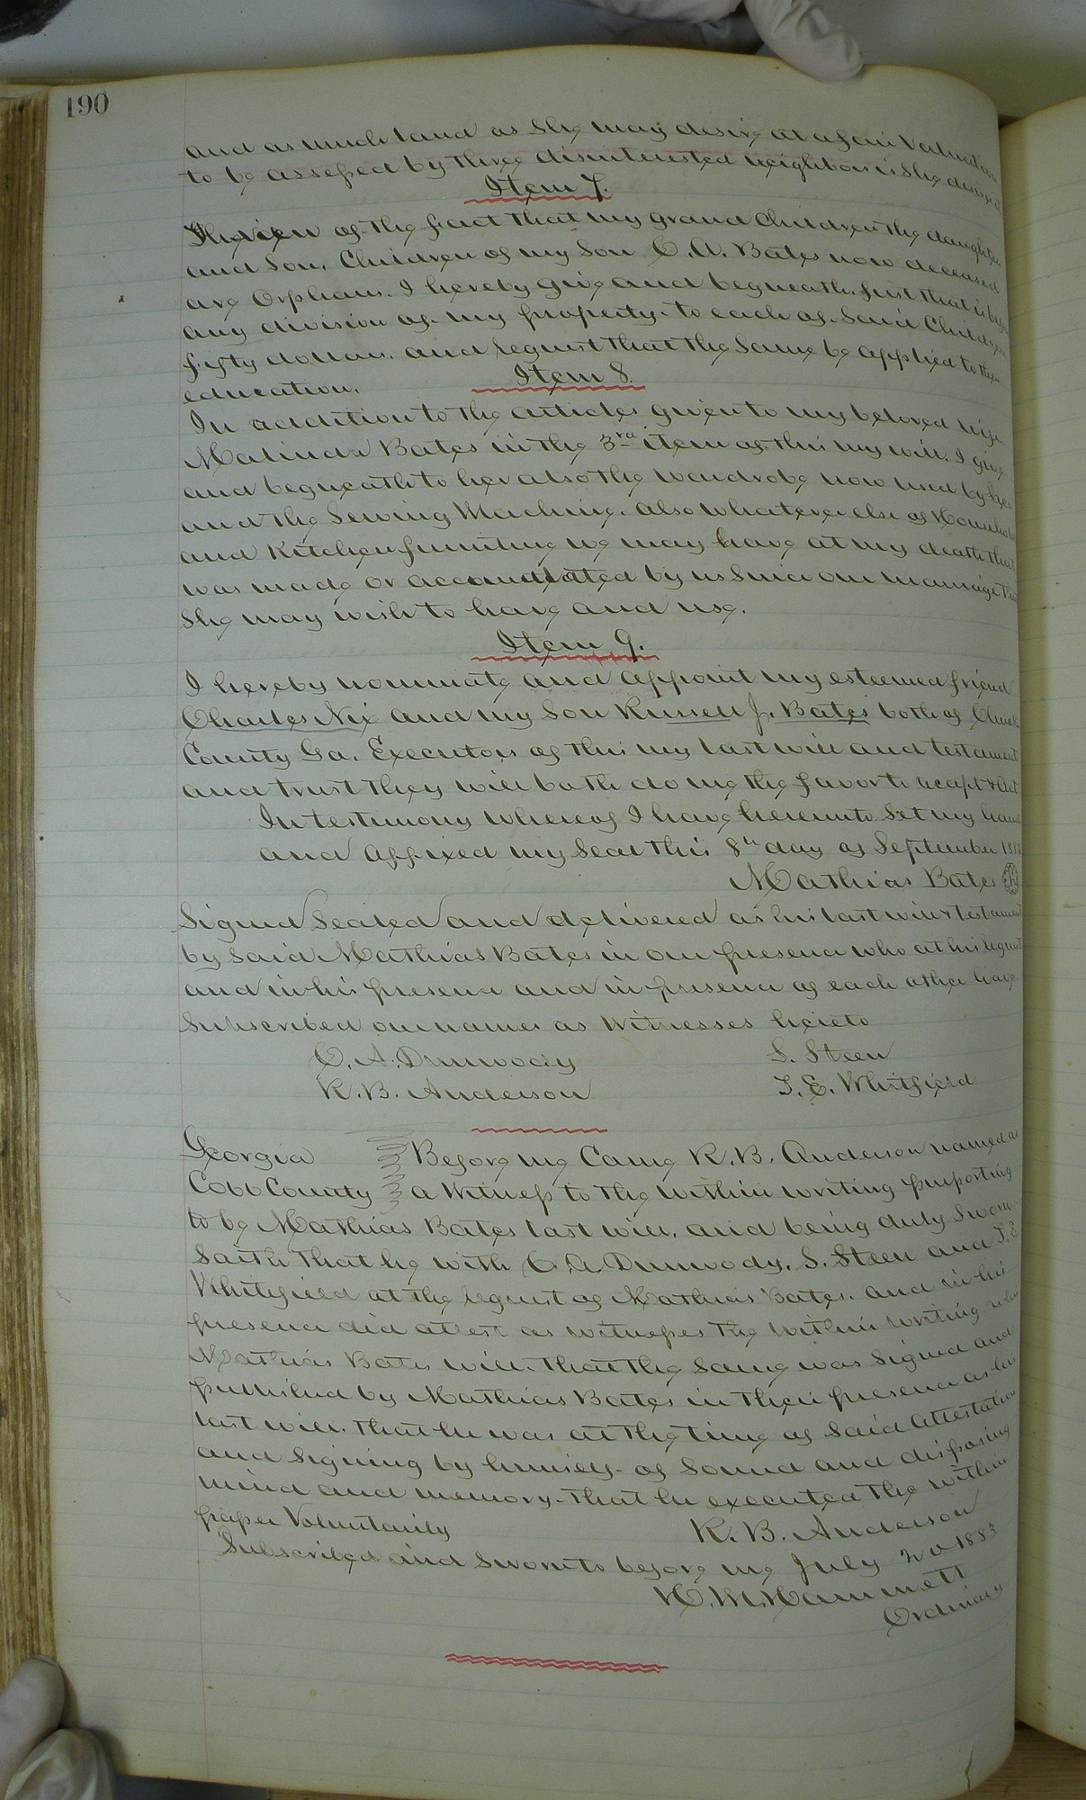 190
and as much land as she may desire at a fair Valuation
to be assessed by three disinterested neighbors is she
Item 7.
The view of the fact that my grand Children the daughter
and Son. Children of my Son C. A. Bates now deceased
are Orphans. I hereby give and bequeath. first that is before
any division of my property to each of said Children
fifty dollars. and request that the same be applied to their
education.
Item 8.
In addition to the articles given to my beloved wife
Malinda Bates in the 3rd item of this my will. I give
and bequeath to her also the wardrobe now used by her
and the Sewing Machine. also whatever else of Household
and Kitchen furniture we may have at my death that
was made or accumulated by us since our marriage that
she may wish to have and use.
Item 9.
I hereby nominate and appoint my esteemed friend
Charles Nix and my Son Russell J. Bates both of
County Ga. Executors of this my last will and testament
and trust they will both do me the favor to accept & Act
In testimony whereof I have hereunto set my hand
and affixed my seal this 8th day of September
Mathias Bates
Signed Sealed and delivered as his last will & testament
by said Mathias Bates in our presence who at his request
and in his presence and in presence of each other have
Subscribed our names as Witnesses hereto
C. A. Dunwody S. Steen
R. B. Anderson T. E. Whitfield
Georgia Before me Came R. B. Anderson named as
Cobb County a Witness to the within writing purporting
to be Mathias Bates last will. and being duly sworn
saith that he with C. A. Dunwody. S. Steen and T. E
Whitfield at the request of Mathias Bates. and in his
presence did attest as witnesses the within writing
Mathias Bates will. that the same was signed and
published by Mathias Bates in their presence as his
last will. that he was at the time of said attestation
and signing by himself of sound and disposing
mind and memory. that he executed the within
paper Voluntarily R. B. Anderson
Subscribed and sworn to before me July 2d 1883
H. M. Hammett
Ordinary